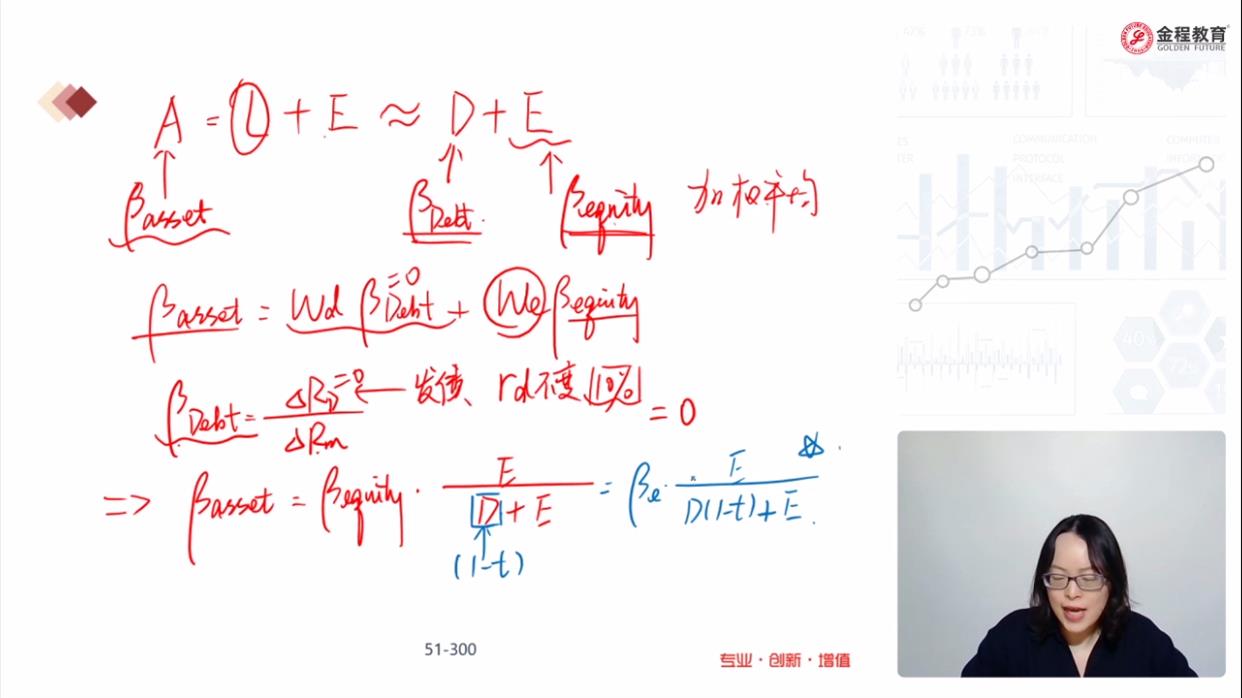 金程教育
GOLDEN FUTURE
A = L + E ≈ D + E
βasset βDebt. βequity 加权平均
βasset = Wd βDebt + We βequity
=0
βDebt = ΔRD / ΔRm
=0 ← 发债、rd不变 10% = 0
=> βasset = βequity · E / D + E = βe · E / D(1-t) + E.
(1-t)
51-300
专业·创新·增值